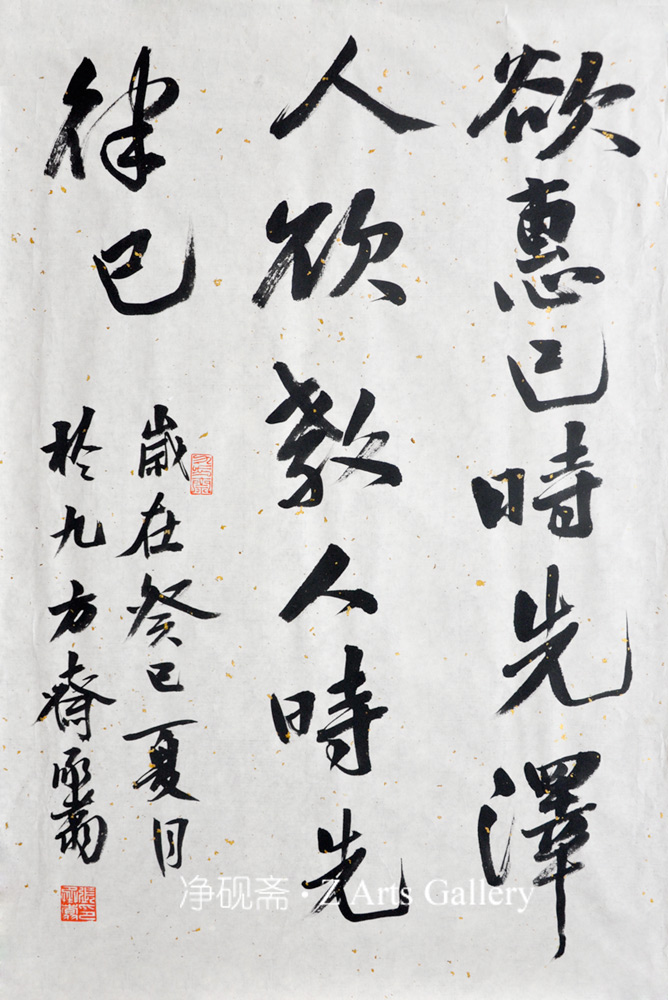 欲惠己時先澤
人欲教人時先
律己
歲在癸巳夏月
於九方齋
净砚斋·Z Arts Gallery